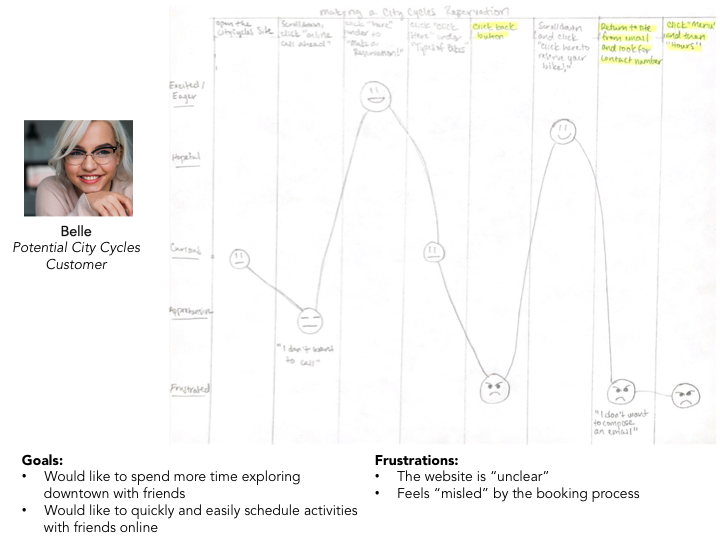 making a City Cycles Reservation
open the
CityCycles Site
Scroll down,
click "online
call ahead"
click "here"
under to
"Make a
Reservation!"
click "click
here" under
"Types of Bikes
click back
button
Scroll down
and click
"click here to
reserve your
bike!"
Return to site
from email
and look for
contact number
click "Menu"
and then
"Hours"
Excited /
Eager
Hopeful
Curious
Apprehensive
Frustrated
"I don't want
to call"
"I don't want
to compose
an email"
Belle
Potential City Cycles
Customer
Goals:
• Would like to spend more time exploring
downtown with friends
• Would like to quickly and easily schedule activities
with friends online
Frustrations:
• The website is “unclear”
• Feels “misled” by the booking process